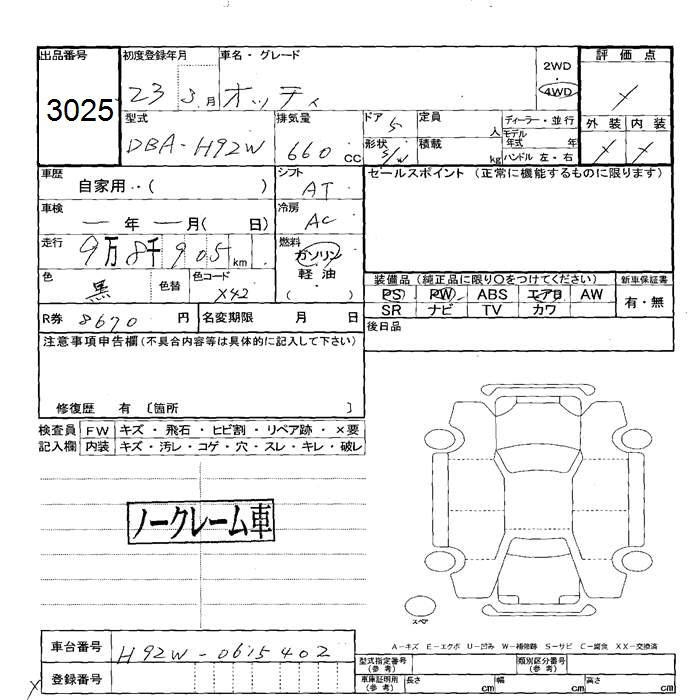 出品番号 初度登録年月 車名・グレード 評価点
3025 23 3月 オッティ 2WD 4WD ×
型式 排気量 ドア 5 定員 人 ディーラー・並行 外装 内装
DBA-H92W 660CC 形状 S/W 積載 kg モデル年式 年 × ×
ハンドル 左・右
車歴 自家用・・( ) シフト AT セールスポイント (正常に機能するものに限ります)
車検 ― 年 ― 月( 日) 冷房 AC
走行 9万8千905km 燃料 ガソリン 軽油 ( )
色 黒 色替 色コード X42 装備品 (純正品に限り〇をつけてください) 新車保証書
PS PW ABS エアロ AW 有・無
SR ナビ TV カワ
R券 8670円 名変期限 月 日 後日品
注意事項申告欄(不具合内容等は具体的に記入して下さい)
修復歴 有 〔箇所 〕
検査員 FW キズ・飛石・ヒビ割・リペア跡・×要
記入欄 内装 キズ・汚レ・コゲ・穴・スレ・キレ・破レ
ノークレーム車
スペア
A-キズ E-エクボ U-凹み W-補修跡 S-サビ C-腐食 XX-交換済
車台番号 H92W-0615402 型式指定番号(参考) 類別区分番号(参考)
登録番号 車庫証明用(参考) 長さ cm 幅 cm 高さ cm